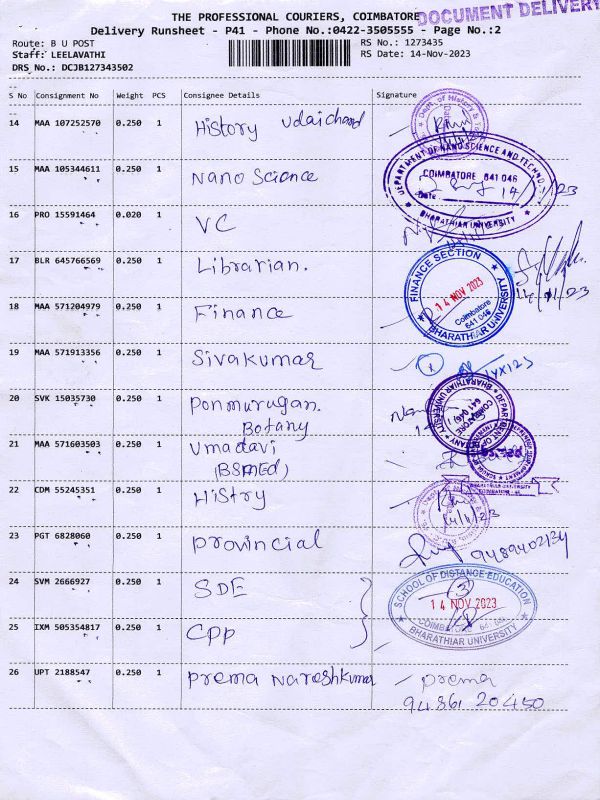 THE PROFESSIONAL COURIERS, COIMBATORE
DOCUMENT DELIVERY
Delivery Runsheet - P41 - Phone No.:0422-3505555 - Page No.:2
Route: B U POST
RS No.: 1273435
Staff: LEELAVATHI
RS Date: 14-Nov-2023
DRS No.: DCJB127343502
S No Consignment No Weight PCS Consignee Details Signature
14 MAA 107252570 0.250 1 History Udaichand
15 MAA 105344611 0.250 1 Nano Science
DEPARTMENT OF NANO SCIENCE AND TECHNO
COIMBATORE 641 046
Date
BHARATHIAR UNIVERSITY
16 PRO 15591464 0.020 1 VC
17 BLR 645766569 0.250 1 Librarian.
FINANCE SECTION
14 NOV 2023
Coimbatore
641 046
BHARATHIAR UNIVERSITY
18 MAA 571204979 0.250 1 Finance
19 MAA 571913356 0.250 1 Sivakumar
20 SVK 15035730 0.250 1 Ponmurugan.
Botany
21 MAA 571603503 0.250 1 Umadavi
(BSMED)
22 CDM 55245351 0.250 1 HiStry
14/11/23
23 PGT 6828060 0.250 1 provincial
9489402134
24 SVM 2666927 0.250 1 SDE
SCHOOL OF DISTANCE EDUCATION
14 NOV 2023
COIMBATORE 641 046
BHARATHIAR UNIVERSITY
25 IXM 505354817 0.250 1 CPP
26 UPT 2188547 0.250 1 Prema Nareshkumar
prema
94861 20450